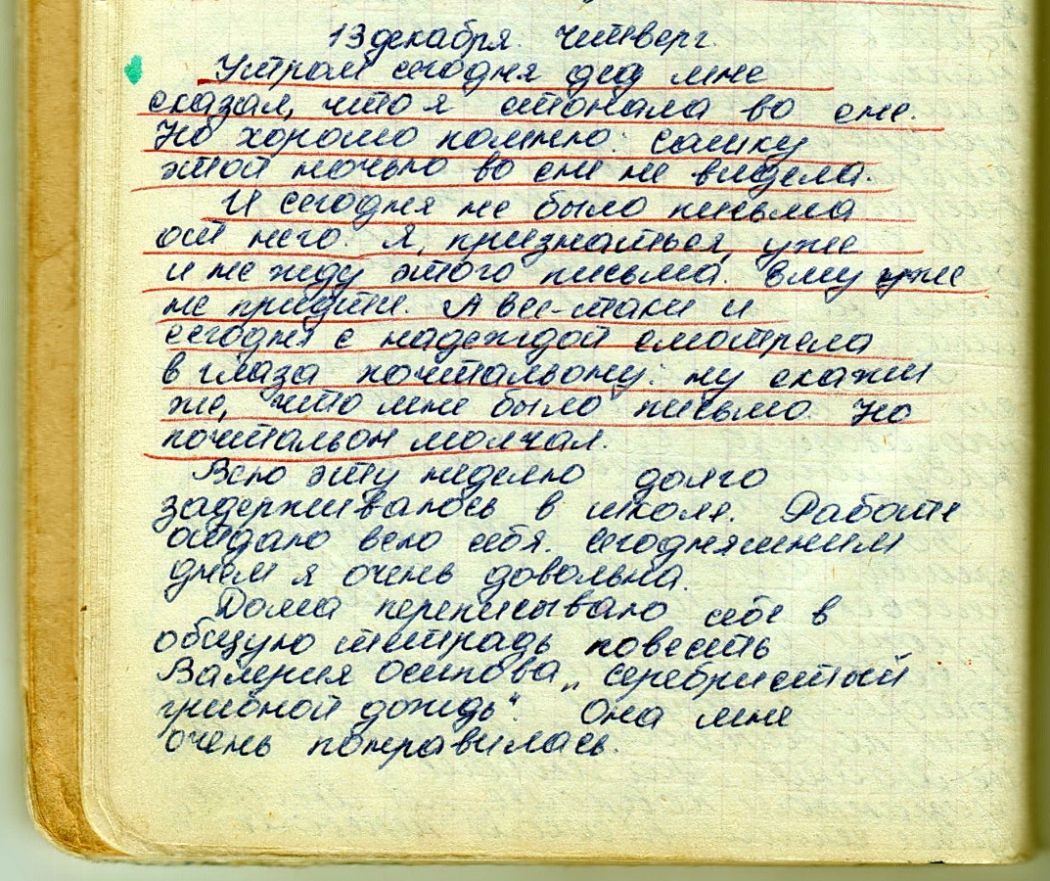 13 декабря. Четверг.
Утром сегодня дед мне
сказал, что я стонала во сне.
Но хорошо помню: Сашку
этой ночью во сне не видела.
И сегодня не было письма
от него. Я, признаться, уже
и не жду этого письма. Ему уже
не придти. А все-таки и
сегодня с надеждой смотрела
в глаза почтальону: ну скажи
же, что мне было письмо. Но
почтальон молчал.
Всю эту неделю долго
задерживалось в школе. Работе
отдаю всю себя. Сегодняшним
днем я очень довольна.
Дома переписываю себе в
общую тетрадь повесть
Валерия Осипова „Серебристый
грибной дождь". Она мне
очень понравилась.